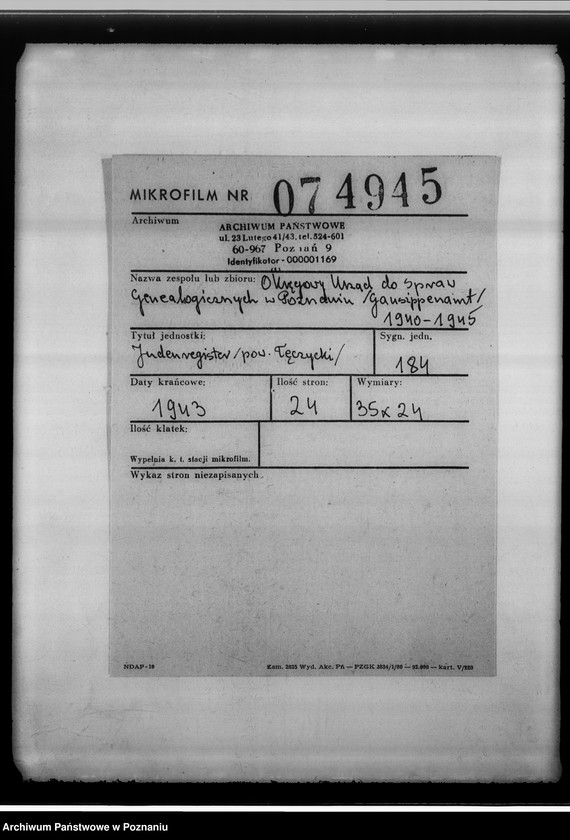 MIKROFILM NR 074945
Archiwum
ARCHIWUM PAŃSTWOWE
ul. 23 Lutego 41/43, tel. 524-601
60-967 Poznań 9
Identyfikator - 000001169
Nazwa zespołu lub zbioru: Okręgowy Urząd do Spraw
Genealogicznych w Poznaniu /Gausippenamt/
1940-1945
Tytuł jednostki:
Judenregister /pow. Łęczycki/
Sygn. jedn.
184
Daty krańcowe:
1943
Ilość stron:
24
Wymiary:
35x24
Ilość klatek:
Wypełnia k. t. stacji mikrofilm.
Wykaz stron niezapisanych.
NDAP-16
Zam. 2825 Wyd. Akc. Pń — PZGK
kart. V/250
Archiwum Państwowe w Poznaniu